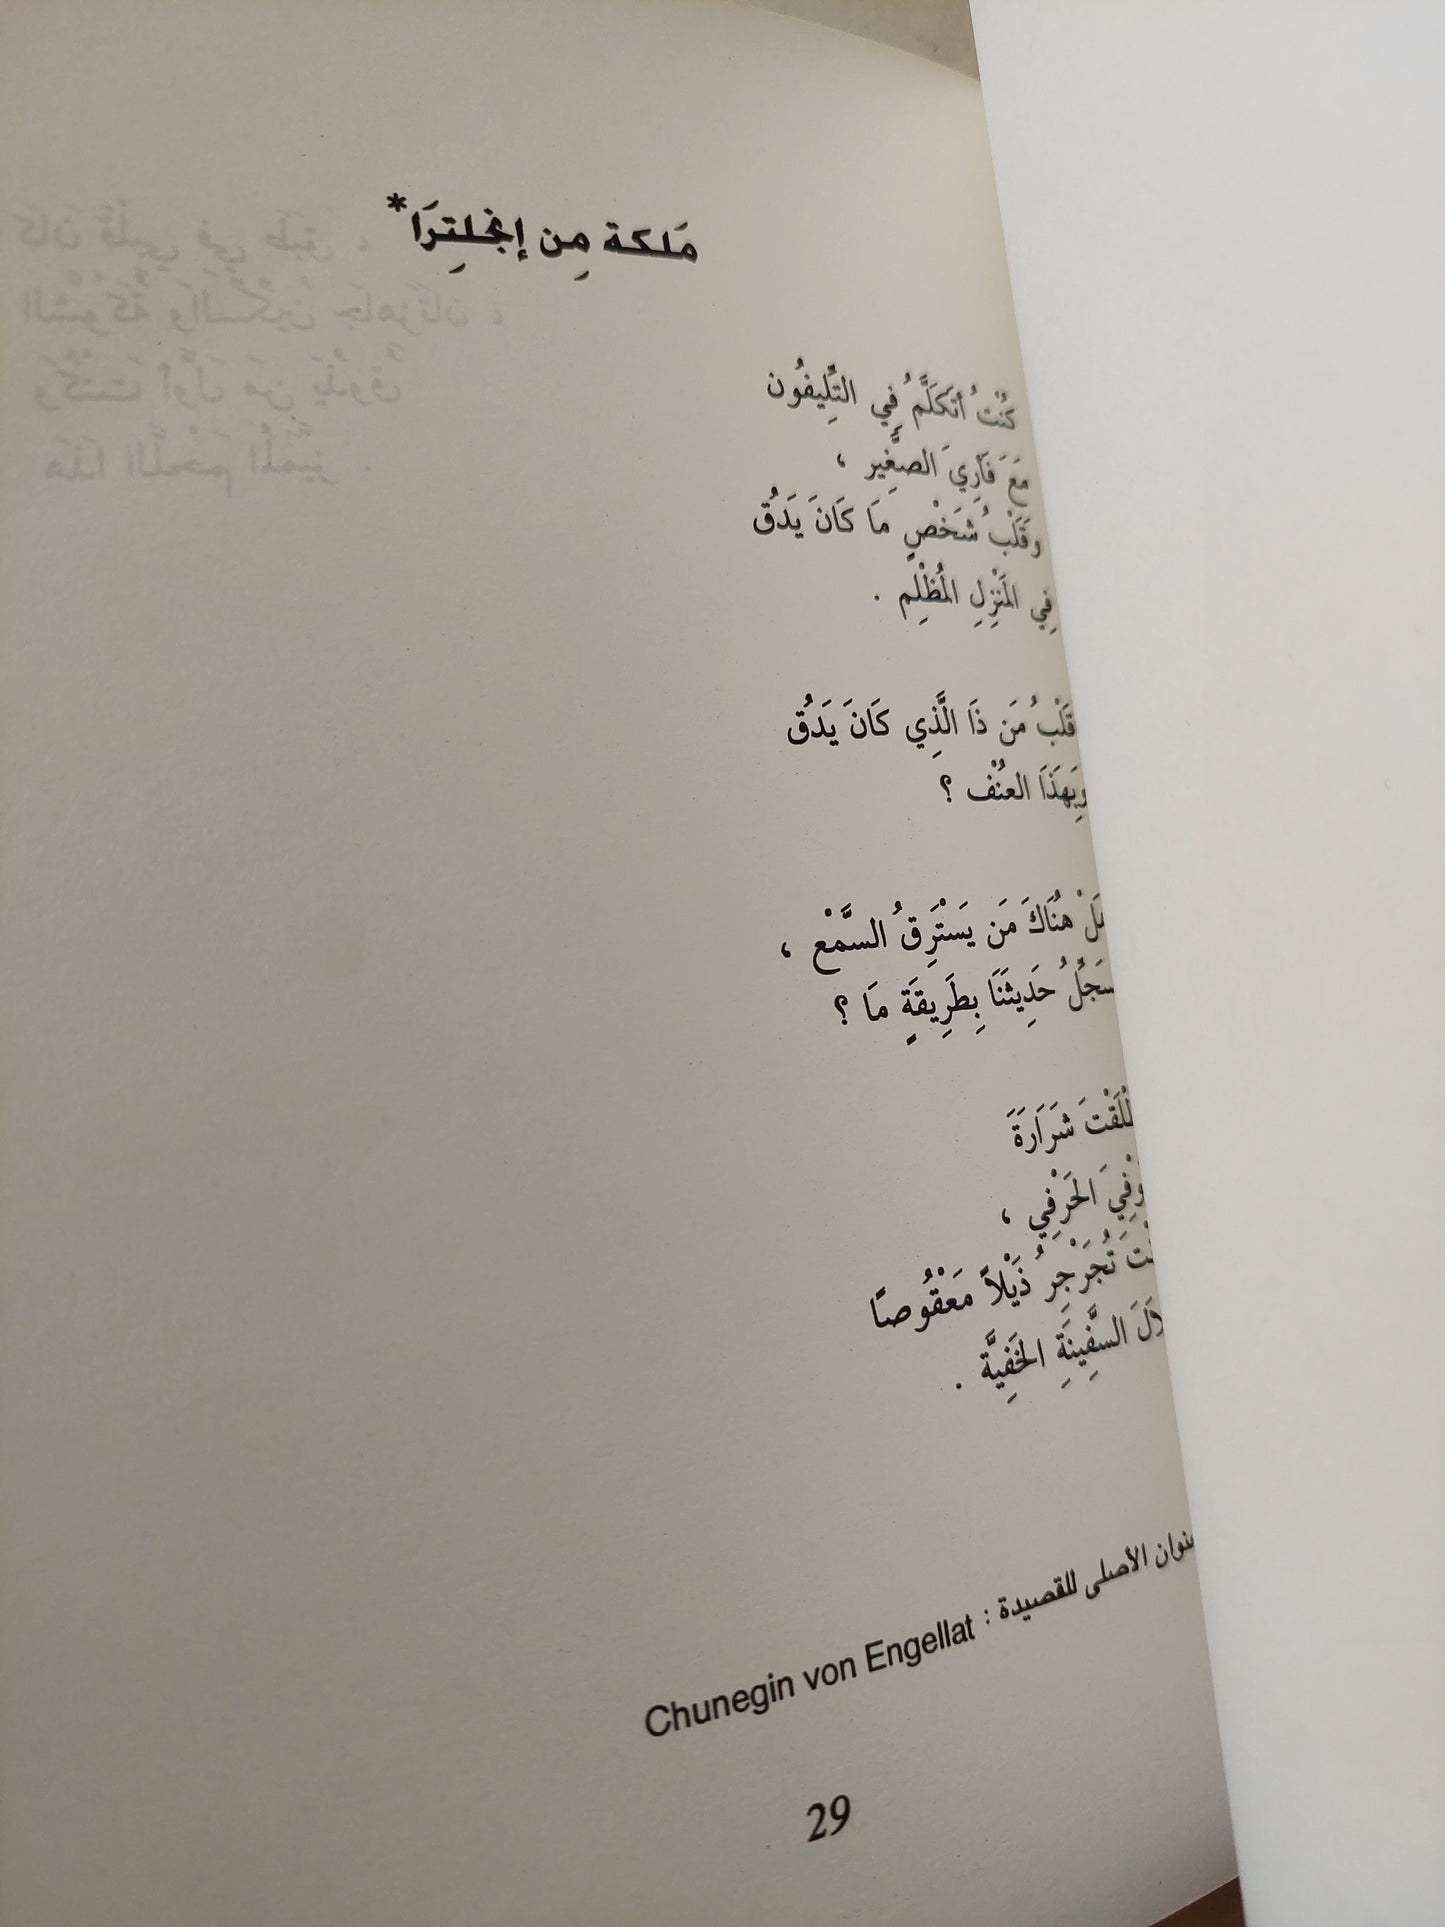 مَلكة مِن إنجلتِرَا*
كُنْتُ أتَكَلَّمُ فِي التِّلِيفُون
مَعَ فَأرِيَ الصغَّيِر ،
وقَلْبُ شَخْصٍ مَا كَانَ يَدُق
فِي المَنْزِلِ المُظْلِم .
قَلْبُ مَن ذَا الَّذِي كَانَ يَدُق
وبِهَذَا العُنْف ؟
هَلْ هُنَاكَ مَن يَسْتَرِقُ السَّمْع ،
حَدِيثَنَا بِطَرِيقَةٍ مَا ؟
شَرَارَةَ
الحَرْفِي ،
تُجَرْجِرُ ذَيْلاً مَعْقُوصًا
السَّفِينَةِ الخَفِيَّة .
الأصلى للقصيدة : Chunegin von Engellat
29